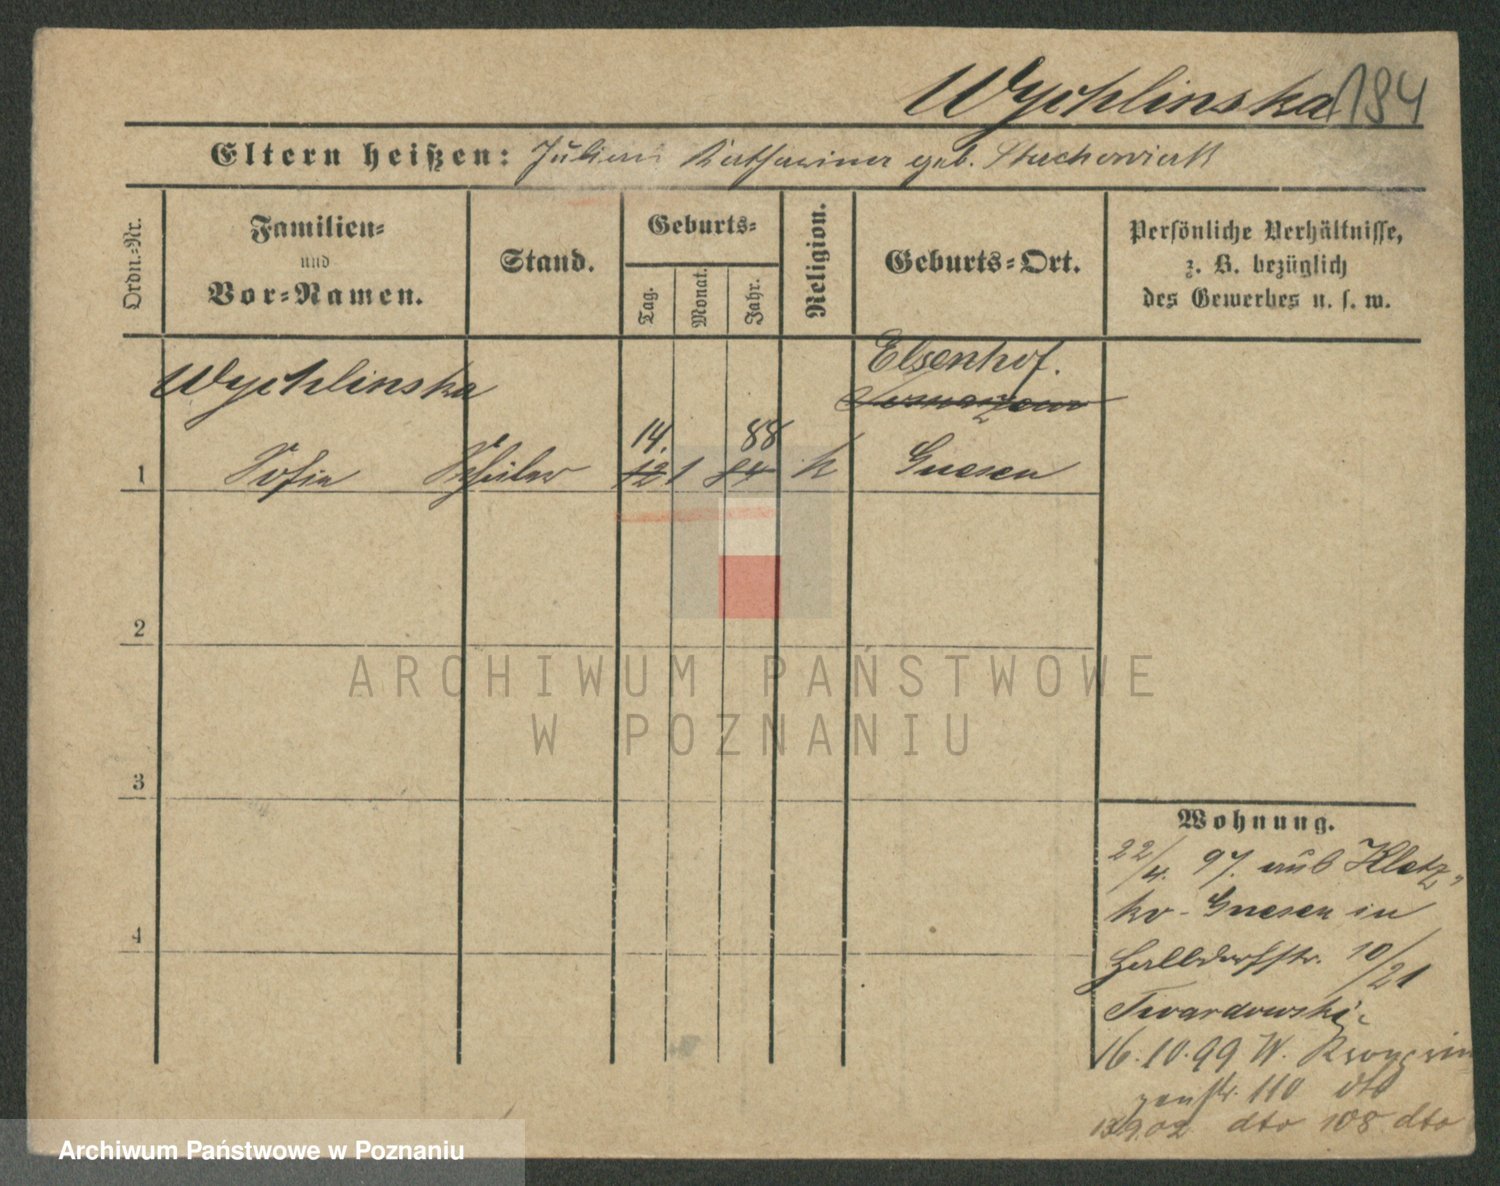 Wychlinska 184
Eltern heißen: Julian Katharina geb. Stachowiak
Ordn.-Nr.
Familien-
und
Vor-Namen.
Stand.
Geburts-
Tag.
Monat.
Jahr.
Religion.
Geburts-Ort.
Persönliche Verhältnisse,
z. B. bezüglich
des Gewerbes u. s. w.
Wychlinska
Elsenhof.
14. 88
1 Sofia Schüler 12 1 84 k Gnesen
2
3
4
Wohnung.
22/4. 97. aus Kletz-
ko-Gnesen in
Halldorfstr. 10/21
Twardowski
16.10.99 W. Kronprin
zenstr. 110 dto
13.9.02 dto 108 dto
ARCHIWUM PAŃSTWOWE
W POZNANIU
Archiwum Państwowe w Poznaniu